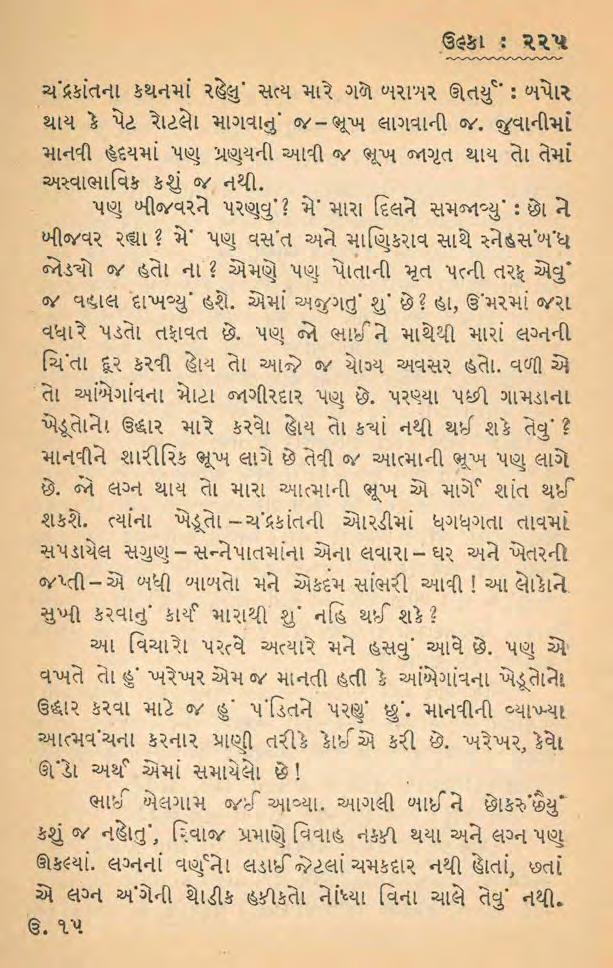 ઉલ્કા : ૨૨૫
ચંદ્રકાંતના કથનમાં રહેલું સત્ય મારે ગળે બરાબર ઊતર્યું : બપોર
થાય કે પેટ રોટલો માગવાનું જ – ભૂખ લાગવાની જ. જુવાનીમાં
માનવી હૃદયમાં પણ પ્રણયની આવી જ ભૂખ જાગૃત થાય તો તેમાં
અસ્વાભાવિક કશું જ નથી.
પણ બીજવરને પરણવું? મેં મારા દિલને સમજાવ્યું : છો ને
બીજવર રહ્યા? મેં પણ વસંત અને માણિકરાવ સાથે સ્નેહસંબંધ
જોડ્યો જ હતો ના? એમણે પણ પોતાની મૃત પત્ની તરફ એવું
જ વહાલ દાખવ્યું હશે. એમાં અજુગતું શું છે? હા, ઉંમરમાં જરા
વધારે પડતો તફાવત છે. પણ જો ભાઈને માથેથી મારાં લગ્નની
ચિંતા દૂર કરવી હોય તો આજે જ યોગ્ય અવસર હતો. વળી એ
તો આંબેગાંવના મોટા જાગીરદાર પણ છે. પરણ્યા પછી ગામડાના
ખેડૂતોનો ઉદ્ધાર મારે કરવો હોય તો ક્યાં નથી થઈ શકે તેવું?
માનવીને શારીરિક ભૂખ લાગે છે તેવી જ આત્માની ભૂખ પણ લાગે
છે. જો લગ્ન થાય તો મારા આત્માની ભૂખ એ માર્ગે શાંત થઈ
શકશે. ત્યાંના ખેડૂતો – ચંદ્રકાંતની ઓરડીમાં ધગધગતા તાવમાં
સપડાયેલ સગુણ – સન્નેપાતમાંના એના લવારા – ઘર અને ખેતરની
જપ્તી – એ બધી બાબતો મને એકદમ સાંભરી આવી! આ લોકોને
સુખી કરવાનું કાર્ય મારાથી શું નહિ થઈ શકે?
આ વિચારો પરત્વે અત્યારે મને હસવું આવે છે. પણ એ
વખતે તો હું ખરેખર એમ જ માનતી હતી કે આંબેગાંવના ખેડૂતોનો
ઉદ્ધાર કરવા માટે જ હું પંડિતને પરણું છું. માનવીની વ્યાખ્યા
આત્મવંચના કરનાર પ્રાણી તરીકે કોઈએ કરી છે. ખરેખર, કેવો
ઊંડો અર્થ એમાં સમાયેલો છે!
ભાઈ બેલગામ જઈ આવ્યા. આગલી બાઈને છોકરુંછૈયું
કશું જ નહોતું, રિવાજ પ્રમાણે વિવાહ નક્કી થયા અને લગ્ન પણ
ઊકલ્યાં. લગ્નનાં વર્ણનો લડાઈ જેટલાં ચમકદાર નથી હોતાં, છતાં
એ લગ્ન અંગેની થોડીક હકીકતો નોંધ્યા વિના ચાલે તેવું નથી.
ઉ. ૧૫